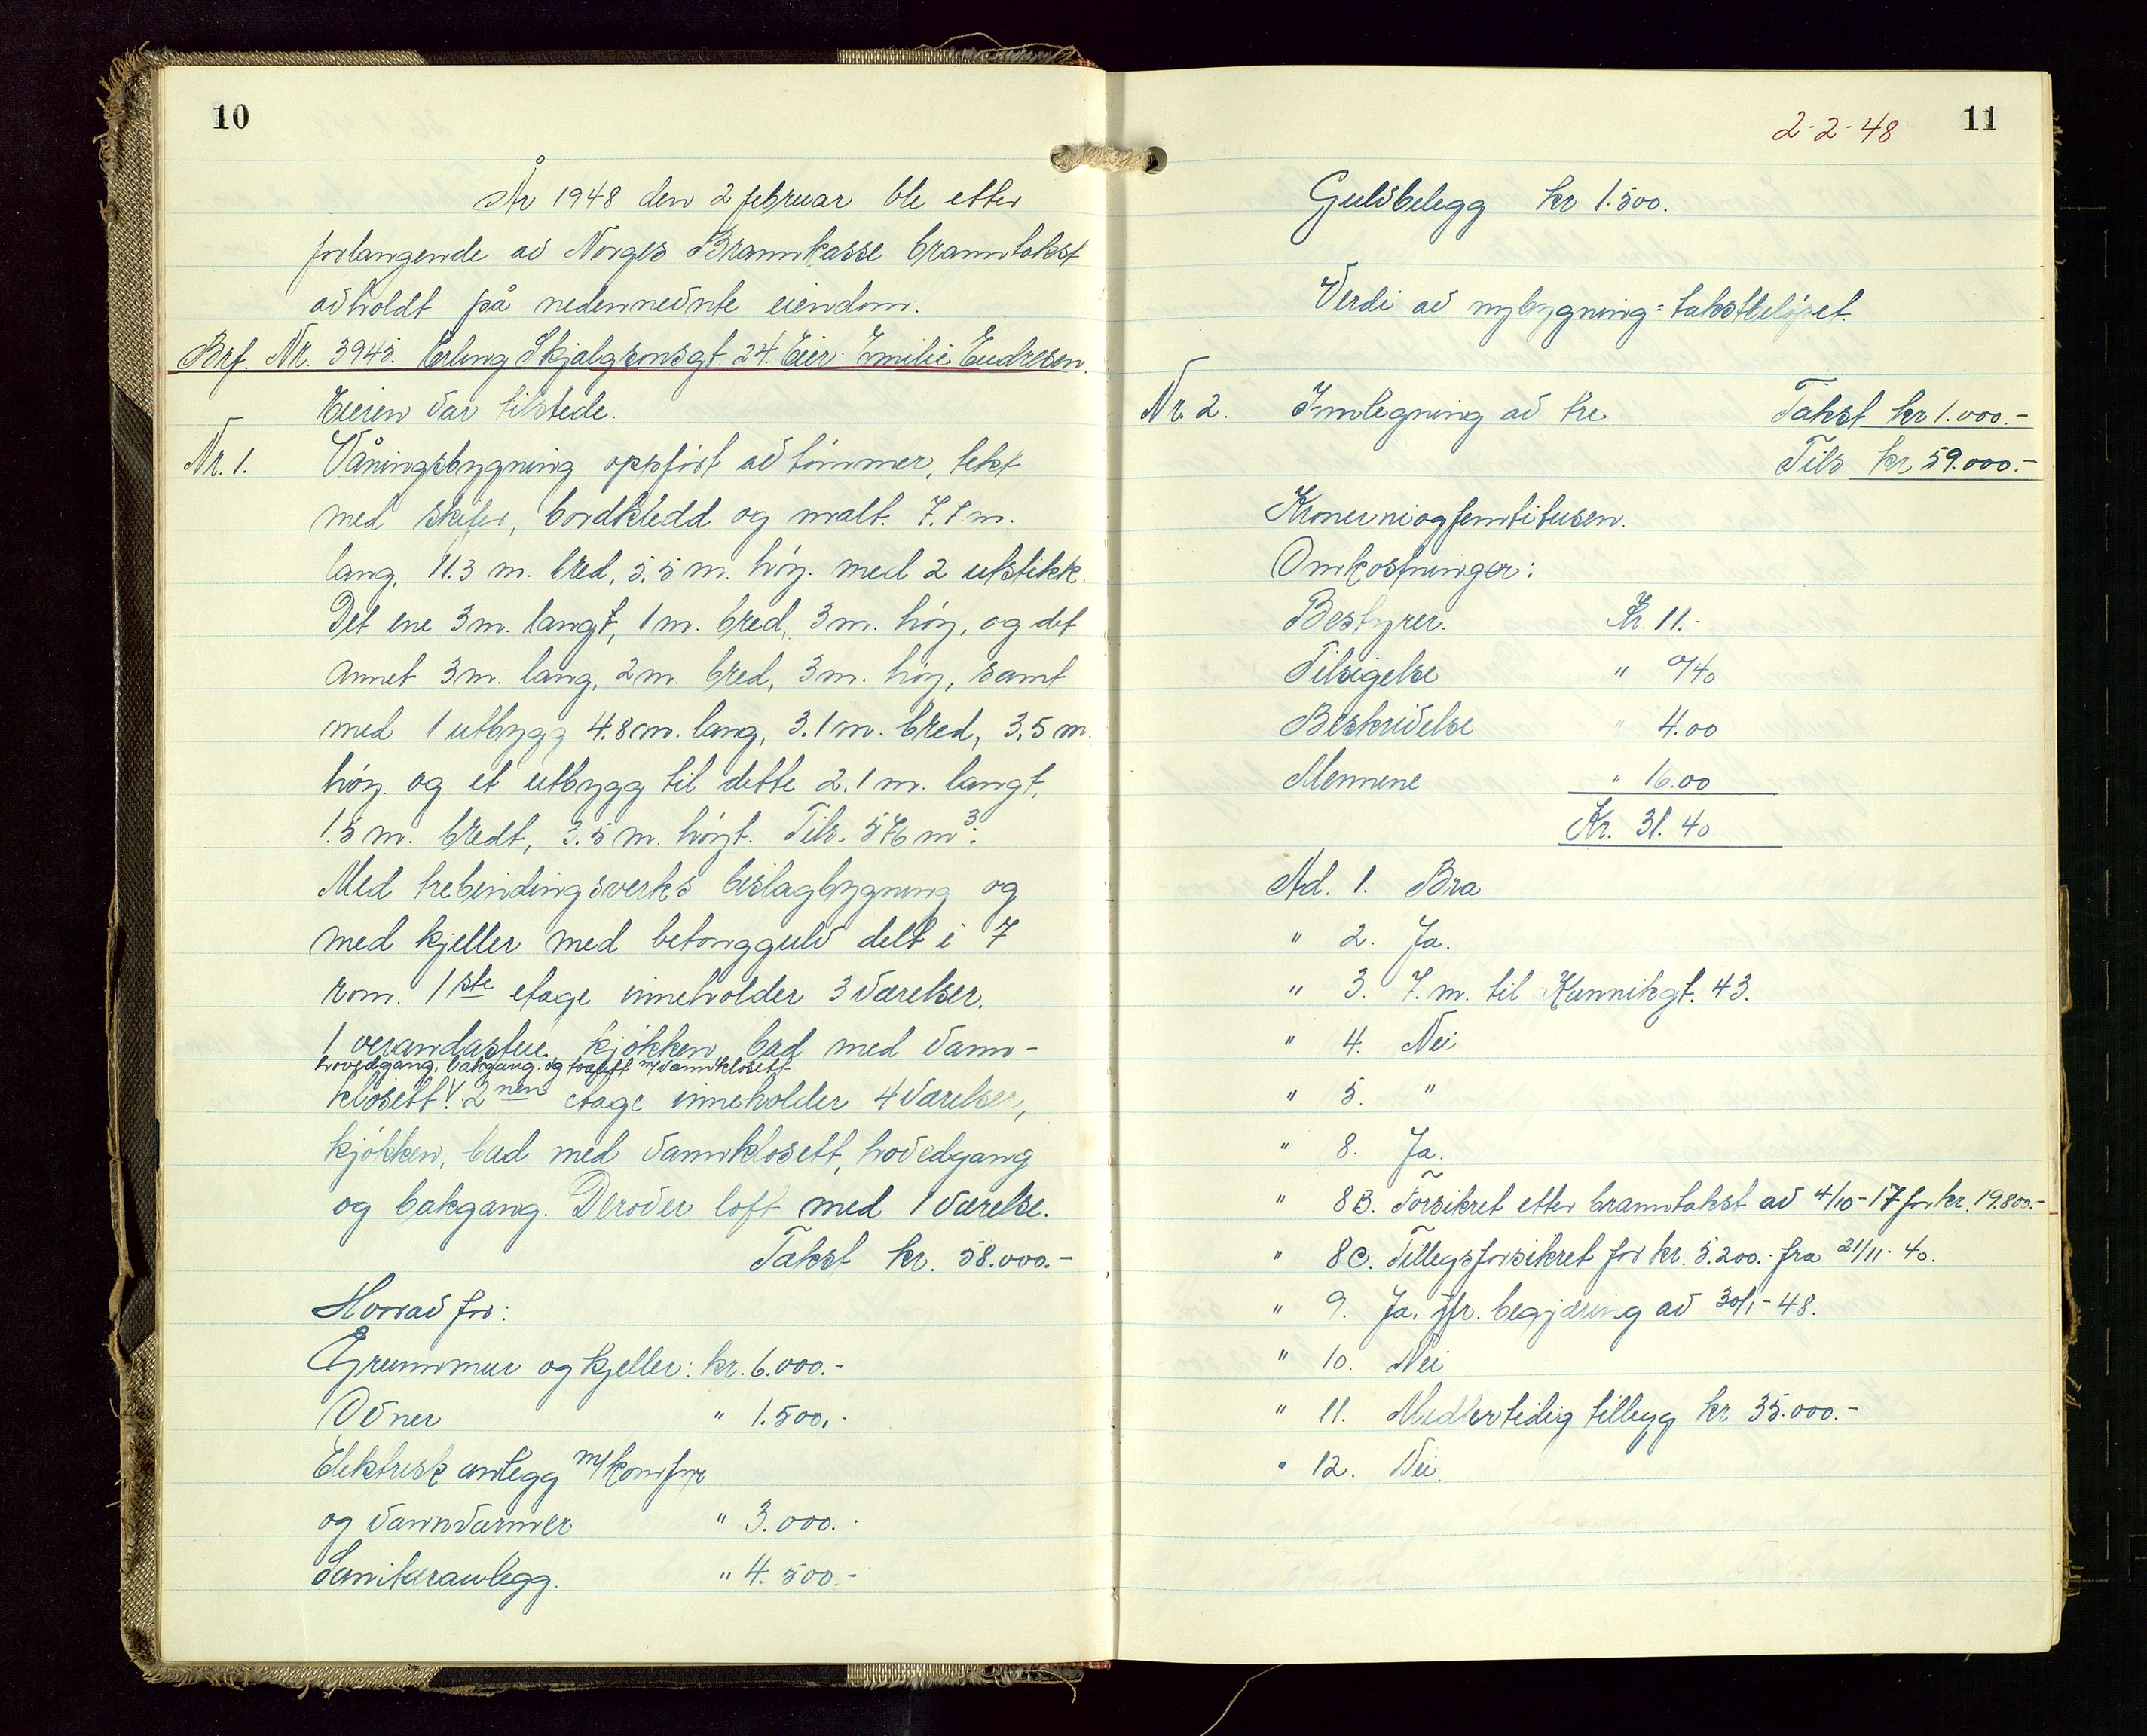 10
År 1948 den 2 februar ble etter
forlangende av Norges Brannkasse branntakst
avholdt på nedennevnte eiendom.
Brf. Nr. 3945. Erling Skjalgsonsgt. 24. Eier: Emilie Endresen.
Eieren var tilstede.
Nr. 1. Våningsbygning oppført av tömmer, tekt
med skifer, bordkledd og malt. 7.7 m.
lang, 11.3 m. bred, 5.5 m. höy. med 2 utstikk.
Det ene 3 m. langt, 1 m. bred, 3 m. höy, og det
annet 3 m. lang, 2 m. bred, 3 m. höy, samt
med 1 utbygg 4.8 m. lang, 3.1 m. bred, 3,5 m.
höy. og et utbygg til dette 2.1 m. langt,
1.5 m. bredt, 3.5 m. höyt. Tils. 576 m³.
Med trebindingsverks bislagbygning og
med kjeller med betonggulv delt i 7
rom. 1ste etage inneholder 3 værelser,
1 verandastue, kjökken, bad med vann-
hovedgang, bakgang og toalett m/vannklosett
klosett. V 2nen etage inneholder 4 værelser,
kjökken, bad med vannklosett, hovedgang
og bakgang. Derover loft med 1 værelse.
Takst kr. 58.000.-
Hvorav for:
Grunnmur og kjeller: kr. 6.000.-
Ovner " 1.500.-
Elektrisk anlegg m/komfyr
og vannvarmer " 3.000.-
Sanitæranlegg. " 4.500.-
2-2-48
11
Gulvbelegg kr 1.500.
Verdi av nybygning = takstbelöpet.
Nr. 2. Innlegning av tre Takst kr 1.000.-
Tils kr 59.000.-
Kroner niogfemtitusen.
Omkostninger:
Bestyrer. Kr. 11.-
Tilsigelse " 0/40
Beskrivelse " 4.00
Mennene " 16.00
Kr. 31.40
Ad. 1. Bra
" 2. Ja.
" 3. 7. m. til Kannikgt. 43.
" 4. Nei
" 5. "
" 8. Ja.
" 8B. Forsikret etter branntakst av 4/10-17 for kr. 19.800.-
" 8C. Tillegsforsikret for kr. 5.200.- fra 21/11-40.
" 9. Ja, jfr. begjæring av 30/1-48.
" 10. Nei
" 11. Midlertidig tillegg kr 35.000.-
" 12. Nei.